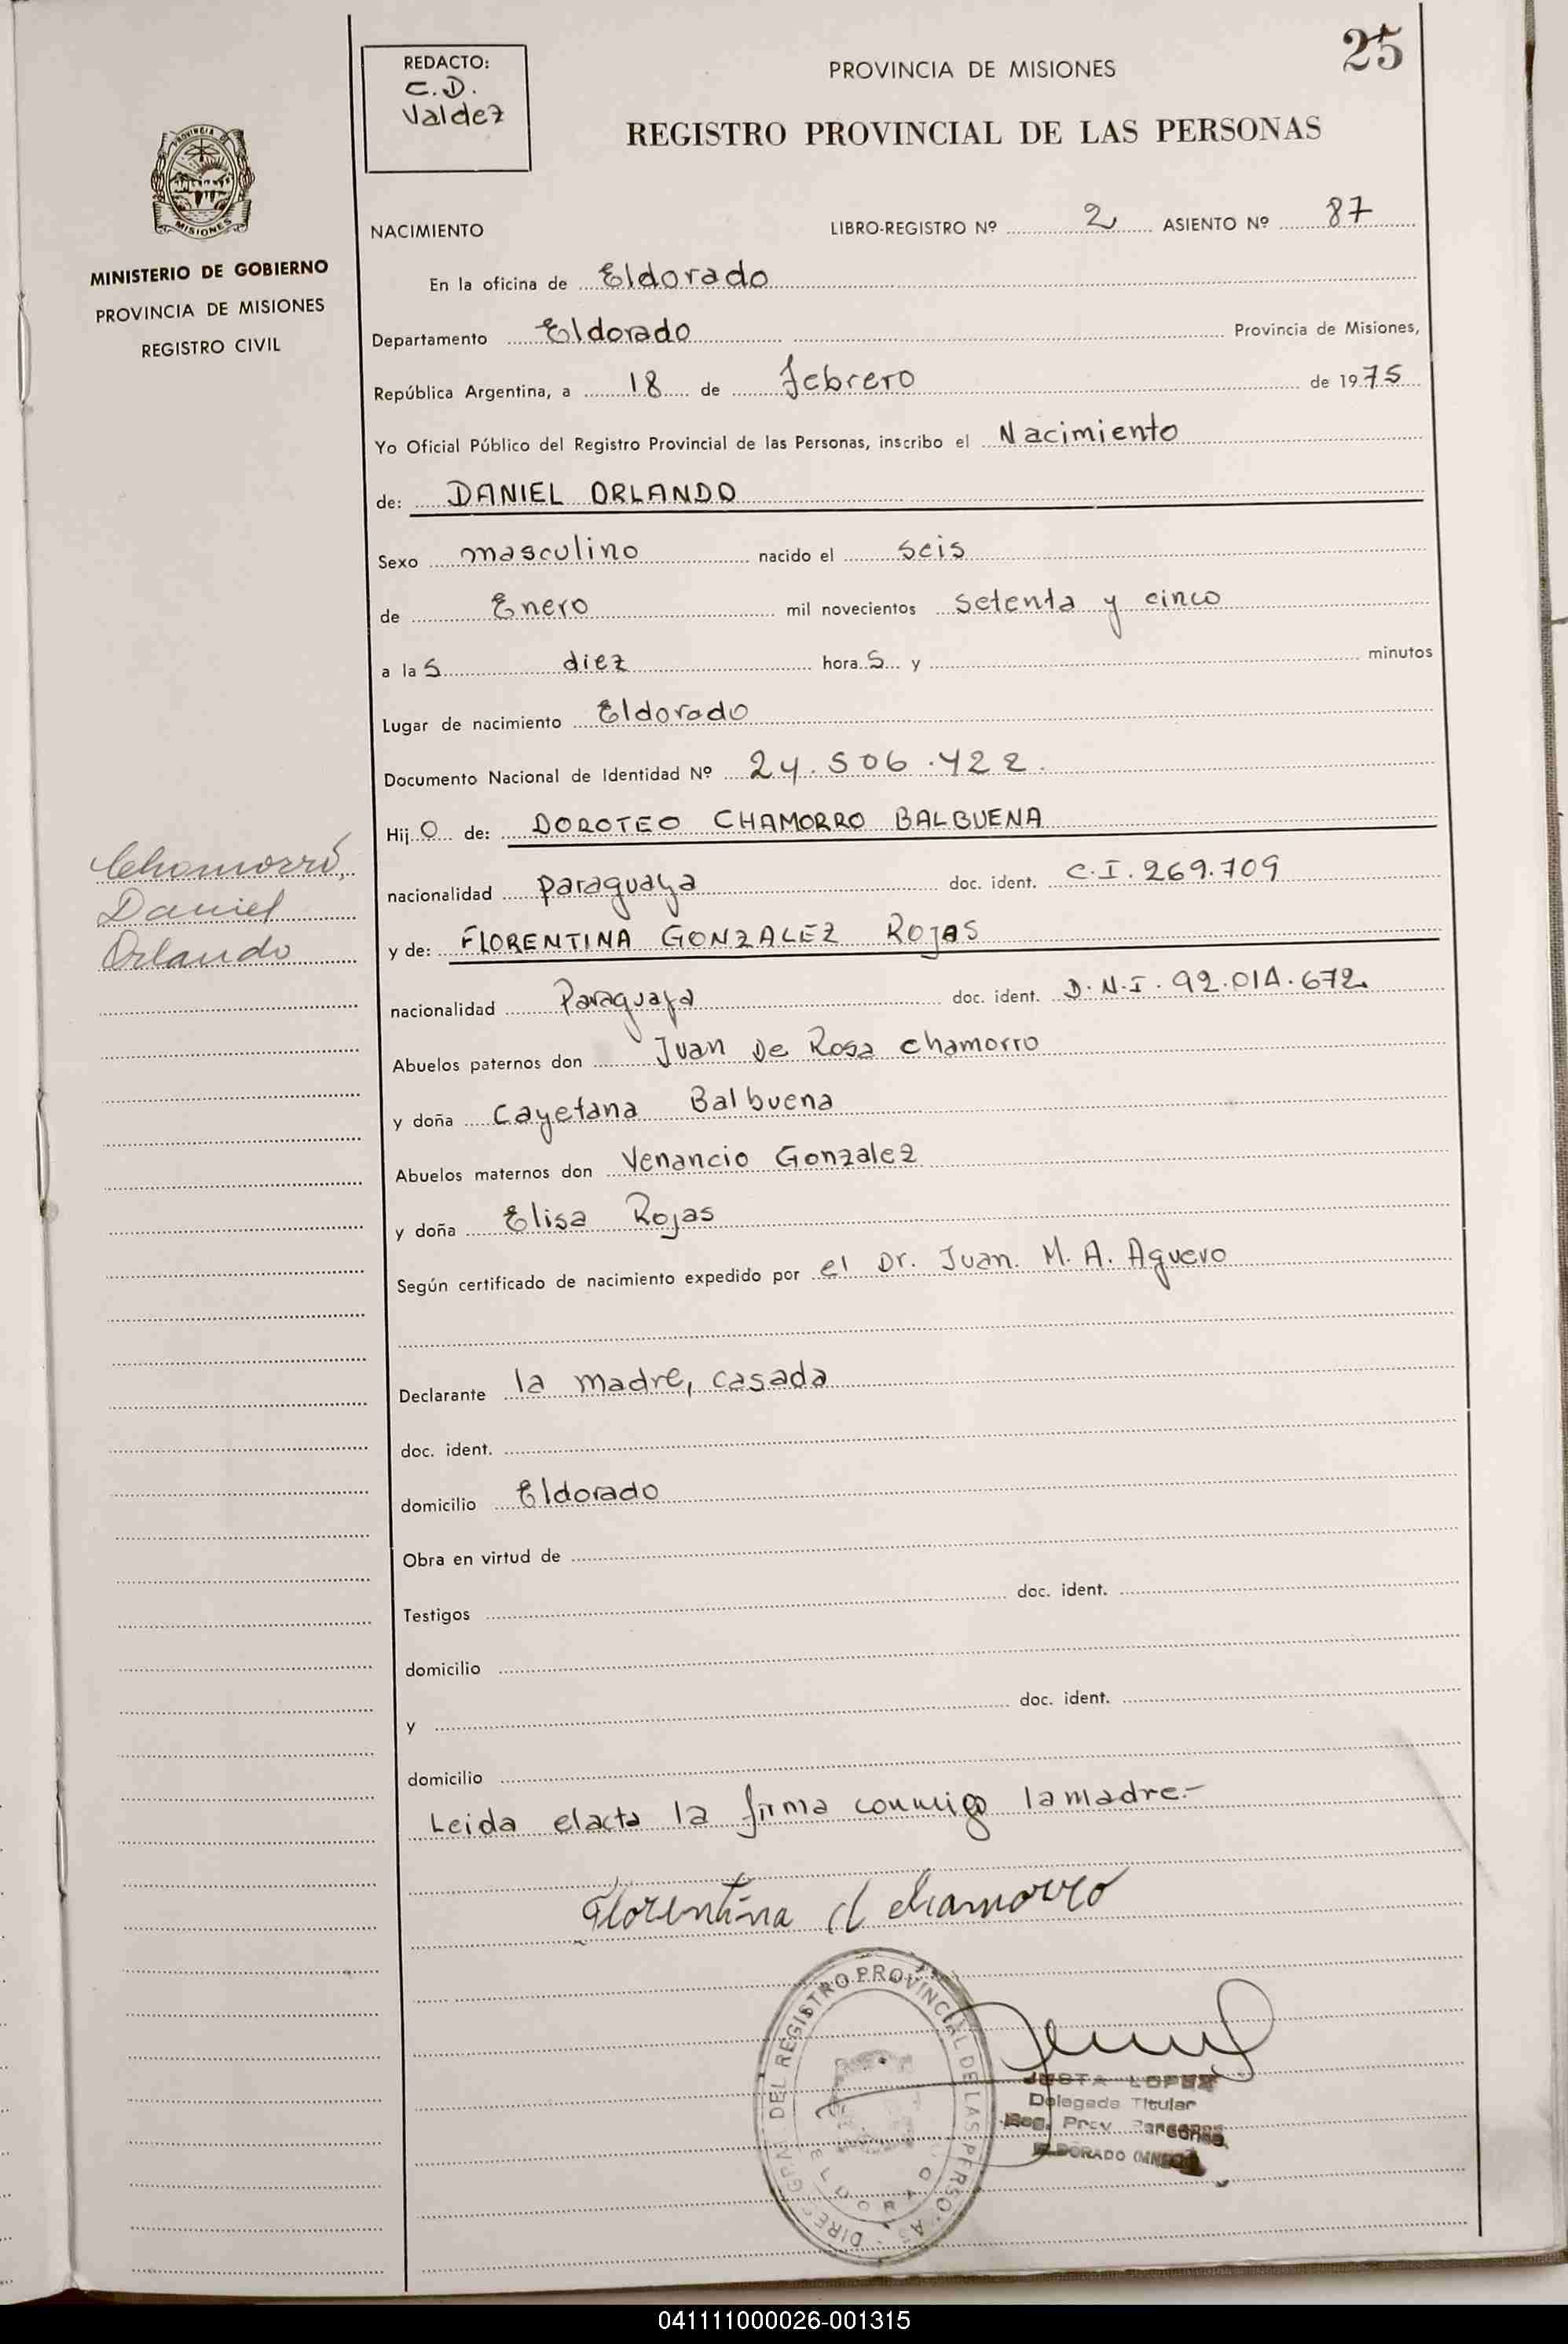 25
REDACTO:
C.D.
Valdez
PROVINCIA DE MISIONES
REGISTRO PROVINCIAL DE LAS PERSONAS
PROVINCIA DE
MISIONES
MINISTERIO DE GOBIERNO
PROVINCIA DE MISIONES
REGISTRO CIVIL
NACIMIENTO LIBRO-REGISTRO Nº 2 ASIENTO Nº 87
En la oficina de Eldorado
Departamento Eldorado Provincia de Misiones,
República Argentina, a 18 de febrero de 1975
Yo Oficial Público del Registro Provincial de las Personas, inscribo el Nacimiento
de: DANIEL ORLANDO
Sexo masculino nacido el seis
de Enero mil novecientos setenta y cinco
a las diez horas y minutos
Lugar de nacimiento Eldorado
Documento Nacional de Identidad Nº 24.506.422.
Hijo de: DOROTEO CHAMORRO BALBUENA
Chamorro,
Daniel
Orlando
nacionalidad paraguaya doc. ident. C.I. 269.709
y de: FLORENTINA GONZALEZ ROJAS
nacionalidad Paraguaya doc. ident. D.N.I. 92.014.672.
Abuelos paternos don Juan De Rosa chamorro
y doña Cayetana Balbuena
Abuelos maternos don Venancio Gonzalez
y doña Elisa Rojas
Según certificado de nacimiento expedido por el Dr. Juan. M. A. Aguero
Declarante la madre, casada
doc. ident.
domicilio Eldorado
Obra en virtud de
Testigos doc. ident.
domicilio
y doc. ident.
domicilio
Leida elacta la firma conmigo lamadre.-
Florentina d chamorro
DEL REGISTRO PROVINCIAL DE LAS PERSONAS
ELDORADO
JUSTA LOPEZ
Delegada Titular
Reg. Prov. Personas
ELDORADO
041111000026-001315